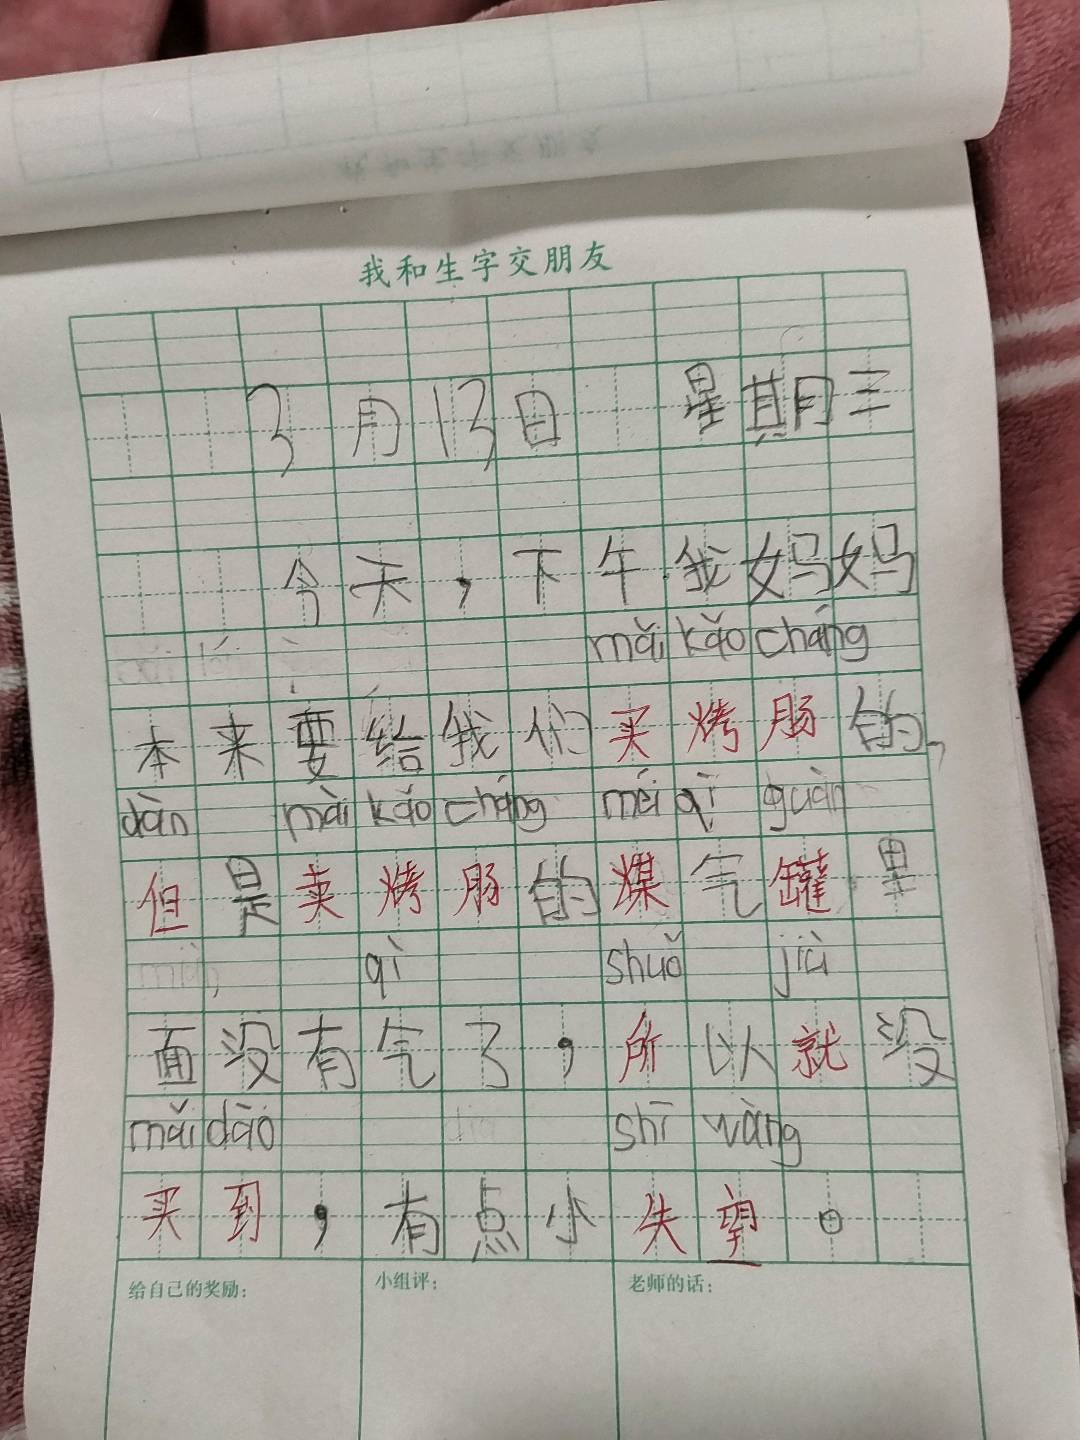 我和生字交朋友
3月13日 星期三
今天，下午我妈妈
mǎi kǎo cháng
本来要给我们买烤肠的，
dàn mài kǎo cháng méi qì guàn
但是卖烤肠的煤气罐里
qì shuǒ jiù
面没有气了，所以就没
mǎi dào shī wàng
买到，有点小失望。
给自己的奖励： 小组评： 老师的话：